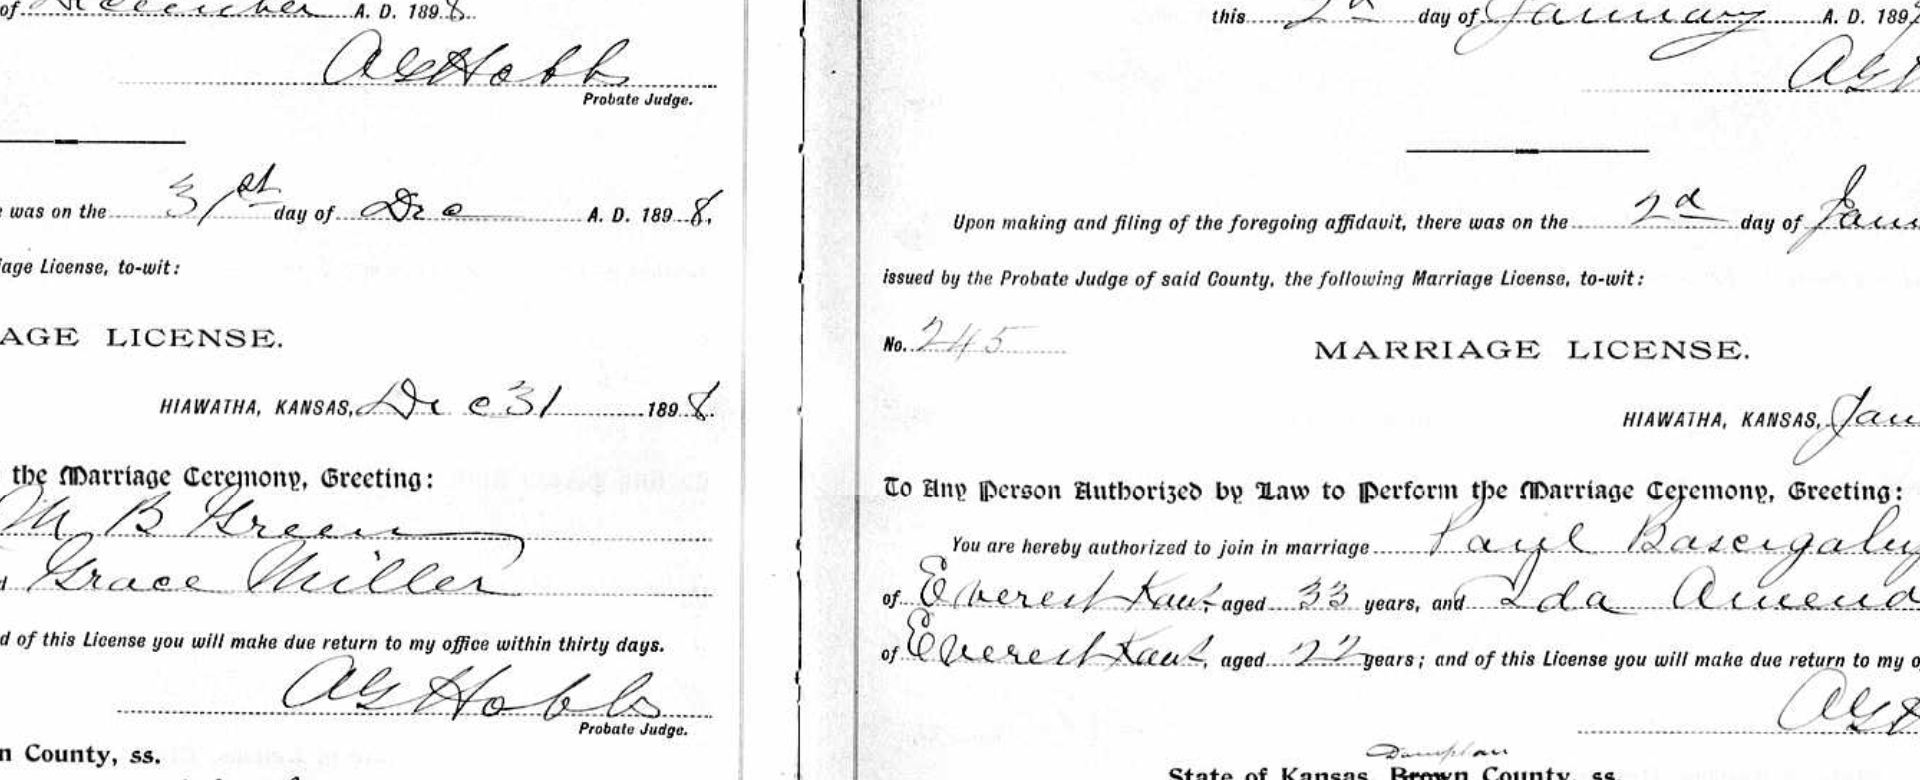 of December A. D. 1898.
A G Hobbs
Probate Judge.
was on the 31st day of Dec A. D. 1898.
iage License, to-wit:
AGE LICENSE.
HIAWATHA, KANSAS, Dec 31 1898.
the Marriage Ceremony, Greeting:
M B Green
Grace Miller
d of this License you will make due return to my office within thirty days.
A G Hobbs
Probate Judge.
n County, ss.
this 2d day of January A. D. 189
A G
Upon making and filing of the foregoing affidavit, there was on the 2d day of Jan
issued by the Probate Judge of said County, the following Marriage License, to-wit:
No. 245
MARRIAGE LICENSE.
HIAWATHA, KANSAS, Jan
To Any Person Authorized by Law to Perform the Marriage Ceremony, Greeting:
You are hereby authorized to join in marriage Paul
of Everest Kans, aged 33 years, and Ida Amend
of Everest Kans, aged 22 years; and of this License you will make due return to my o
A G
Doniphan
State of Kansas, Brown County, ss